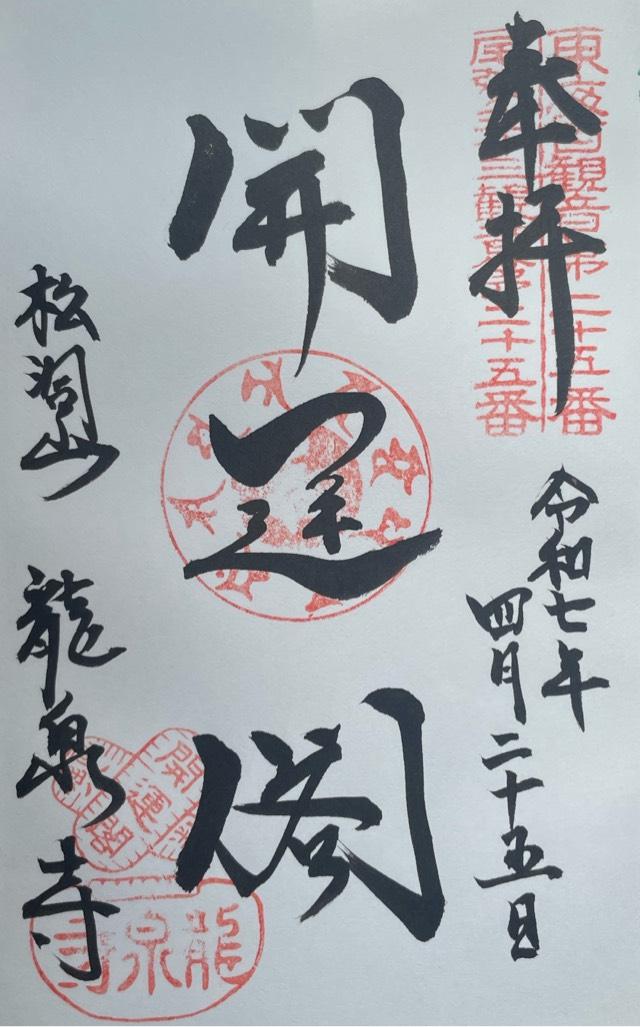 東海百観音第二十五番
尾張三十三観音第二十五番
奉拝
令和七年
四月二十五日
開運閣
松洞山 龍泉寺
開運
閣
龍泉寺